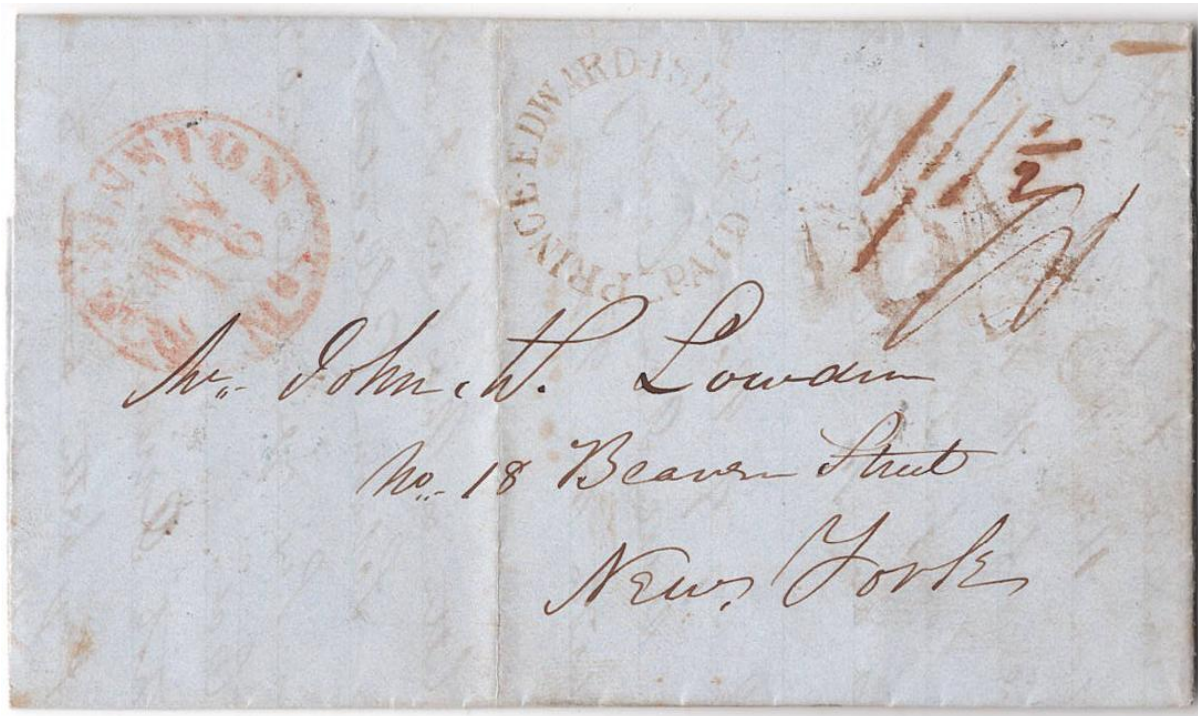 PRINCE·EDWARD·ISLAND
PAID
MAY
1/1½
Mr. John. W. Lowden
No. 18 Beaver Street
New York